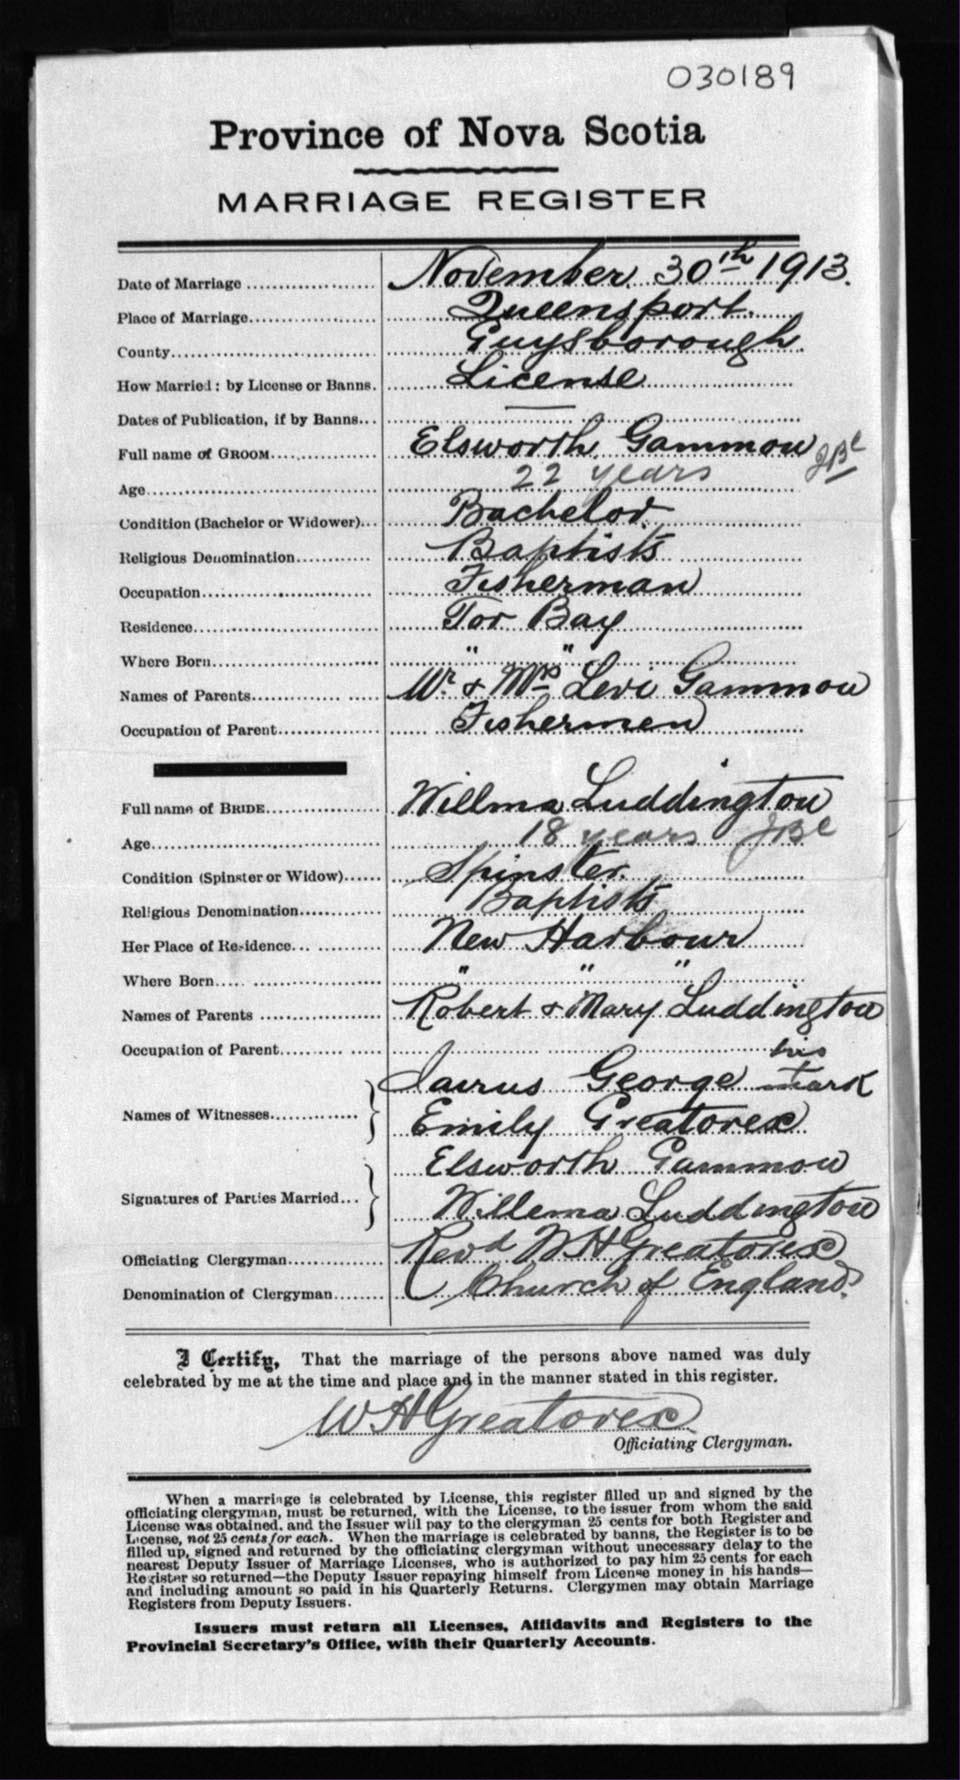 030189
Province of Nova Scotia
MARRIAGE REGISTER
Date of Marriage November 30th 1913.
Place of Marriage Queensport.
County Guysborough.
How Married: by License or Banns. License
Dates of Publication, if by Banns... —
Full name of GROOM Elsworth Gammon JBC
Age 22 years
Condition (Bachelor or Widower)... Bachelor.
Religious Denomination Baptists
Occupation Fisherman
Residence Tor Bay
Where Born " "
Names of Parents Mr. & Mrs Levi Gammon
Occupation of Parent Fishermen
Full name of BRIDE Willma Luddington
Age 18 years JBC
Condition (Spinster or Widow) Spinster.
Religious Denomination Baptists
Her Place of Residence New Harbour
Where Born " " "
Names of Parents Robert & Mary Luddington
Occupation of Parent
his
Jairus George mark
Names of Witnesses
Emily Greatorex
Elsworth Gammon
Signatures of Parties Married...
Willema Luddington
Officiating Clergyman Revd W H Greatorex
Denomination of Clergyman Church of England.
I Certify, That the marriage of the persons above named was duly
celebrated by me at the time and place and in the manner stated in this register.
W H Greatorex
Officiating Clergyman.
When a marriage is celebrated by License, this register filled up and signed by the
officiating clergyman, must be returned, with the License, to the issuer from whom the said
License was obtained, and the Issuer will pay to the clergyman 25 cents for both Register and
License, not 25 cents for each. When the marriage is celebrated by banns, the Register is to be
filled up, signed and returned by the officiating clergyman without unnecessary delay to the
nearest Deputy Issuer of Marriage Licenses, who is authorized to pay him 25 cents for each
Register so returned—the Deputy Issuer repaying himself from License money in his hands—
and including amount so paid in his Quarterly Returns. Clergymen may obtain Marriage
Registers from Deputy Issuers.
Issuers must return all Licenses, Affidavits and Registers to the
Provincial Secretary's Office, with their Quarterly Accounts.